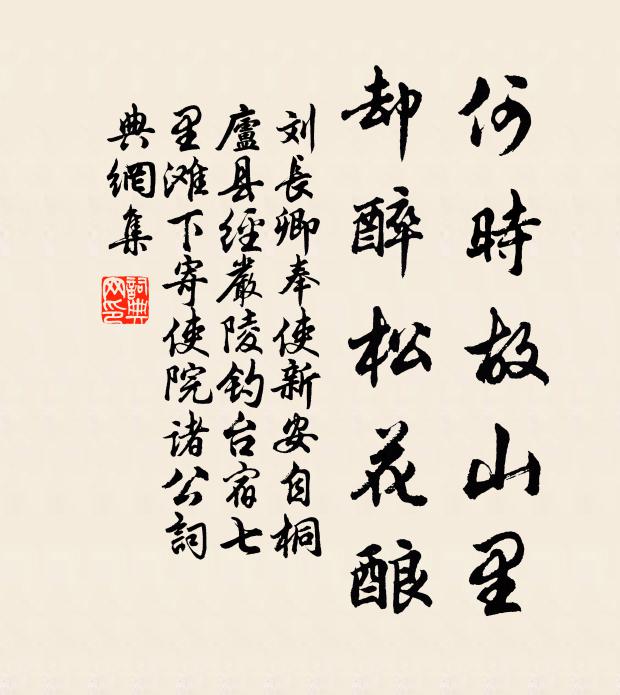 何時故山里
却醉松花酿
刘長卿奉使新安自桐
廬县經嚴陵钓台宿七
里滩下寄使院诸公詞
典網集
詞典
网印